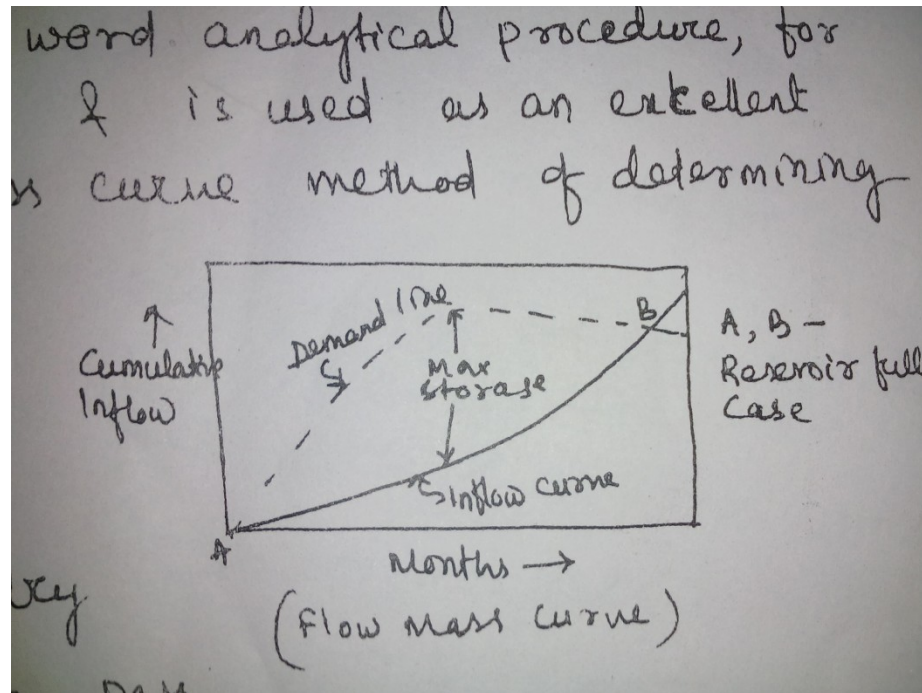 word analytical procedure, for
& is used as an excellent
ss curve method of determining
Demand line
B
A, B -
Cumulative
Inflow
Max
Storage
Reservoir full
Case
Inflow curve
A
Months →
(Flow Mass Curve)